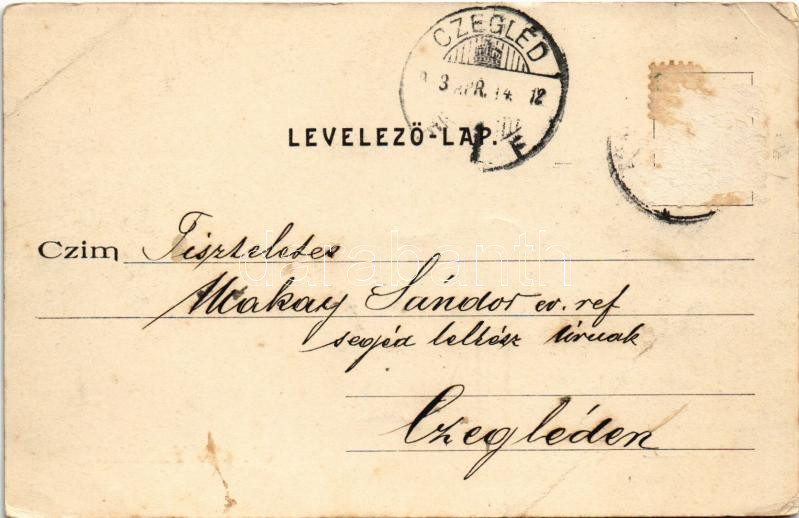 CZEGLÉD
3 APR. 14. 12
F
LEVELEZŐ-LAP.
Czim Tiszteletes
Makay Sándor ev. ref
segéd lelkész úrnak
Czegléden
darabanth